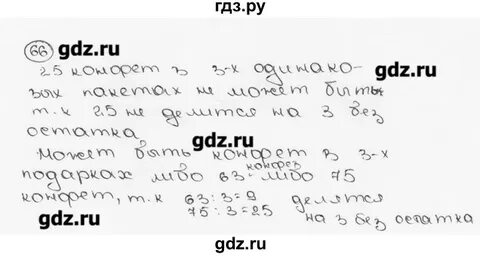 гдз.ру
66
gdz.ru
25 конфет в 3-х одинако-
gdz.ru
вых пакетах не может быть
т.к 25 не делится на 3 без
gdz.ru
остатка
gdz.ru
Может быть конфет в 3-х
конфет
подарках либо 63 либо 75
конфет, т.к 63:3=9 делятся
gdz.ru
gdz.ru
75:3=25 на 3 без остатка
gdz.ru